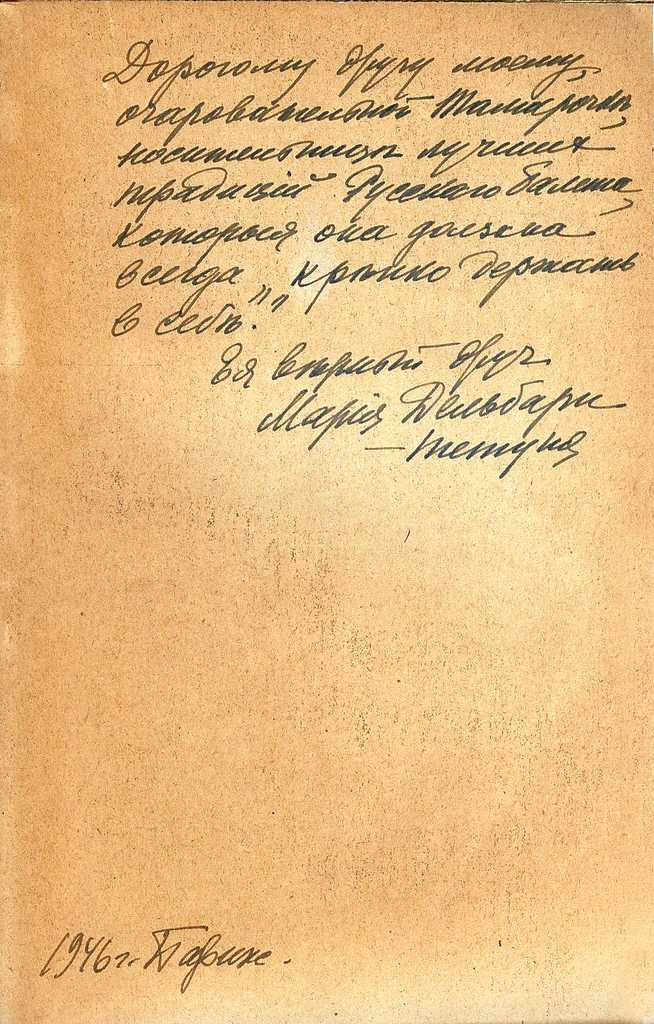 Дорогому другу моему
очаровательной Тамарочкѣ,
носительницы лучших
традицій Русскаго балета,
которыя она должна
всегда „крѣпко держать
в себѣ."
Ея вѣрный друг
Марія Дельбари
—тетуня
1946 г. Париж.